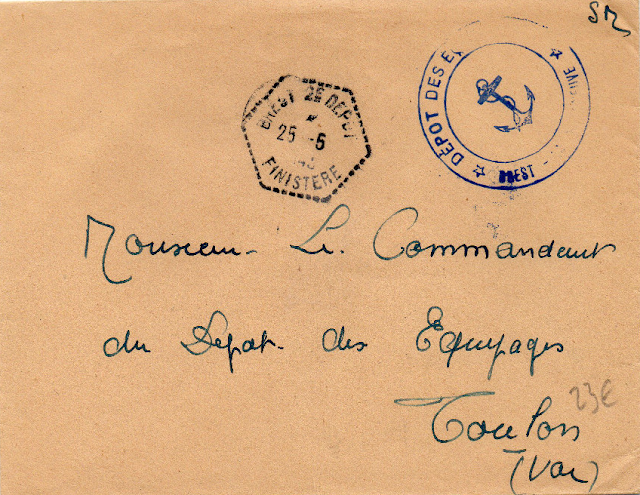 SM
BREST 2E DEPOT
25 -6
FINISTERE
DÉPOT DES
BREST
Monsieur Le Commandant
du Depot des Equipages
Toulon
(Var)
23€